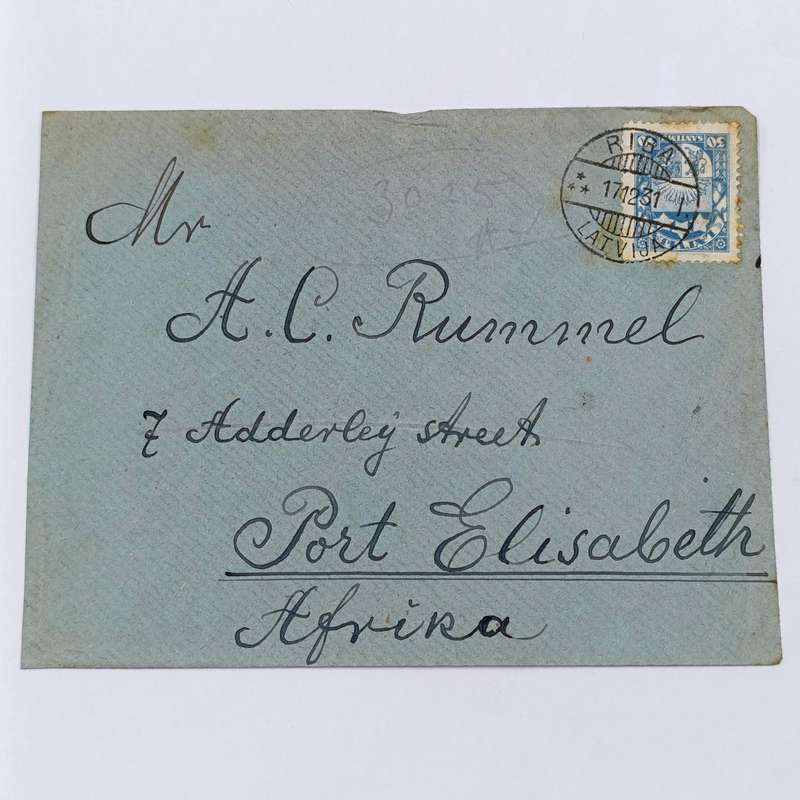 RIGA
17.12.31
LATVIJA
30
SANTIMU
30
LATVIJA
Mr
A. C. Rummel
7 Adderley street
Port Elisabeth
Afrika